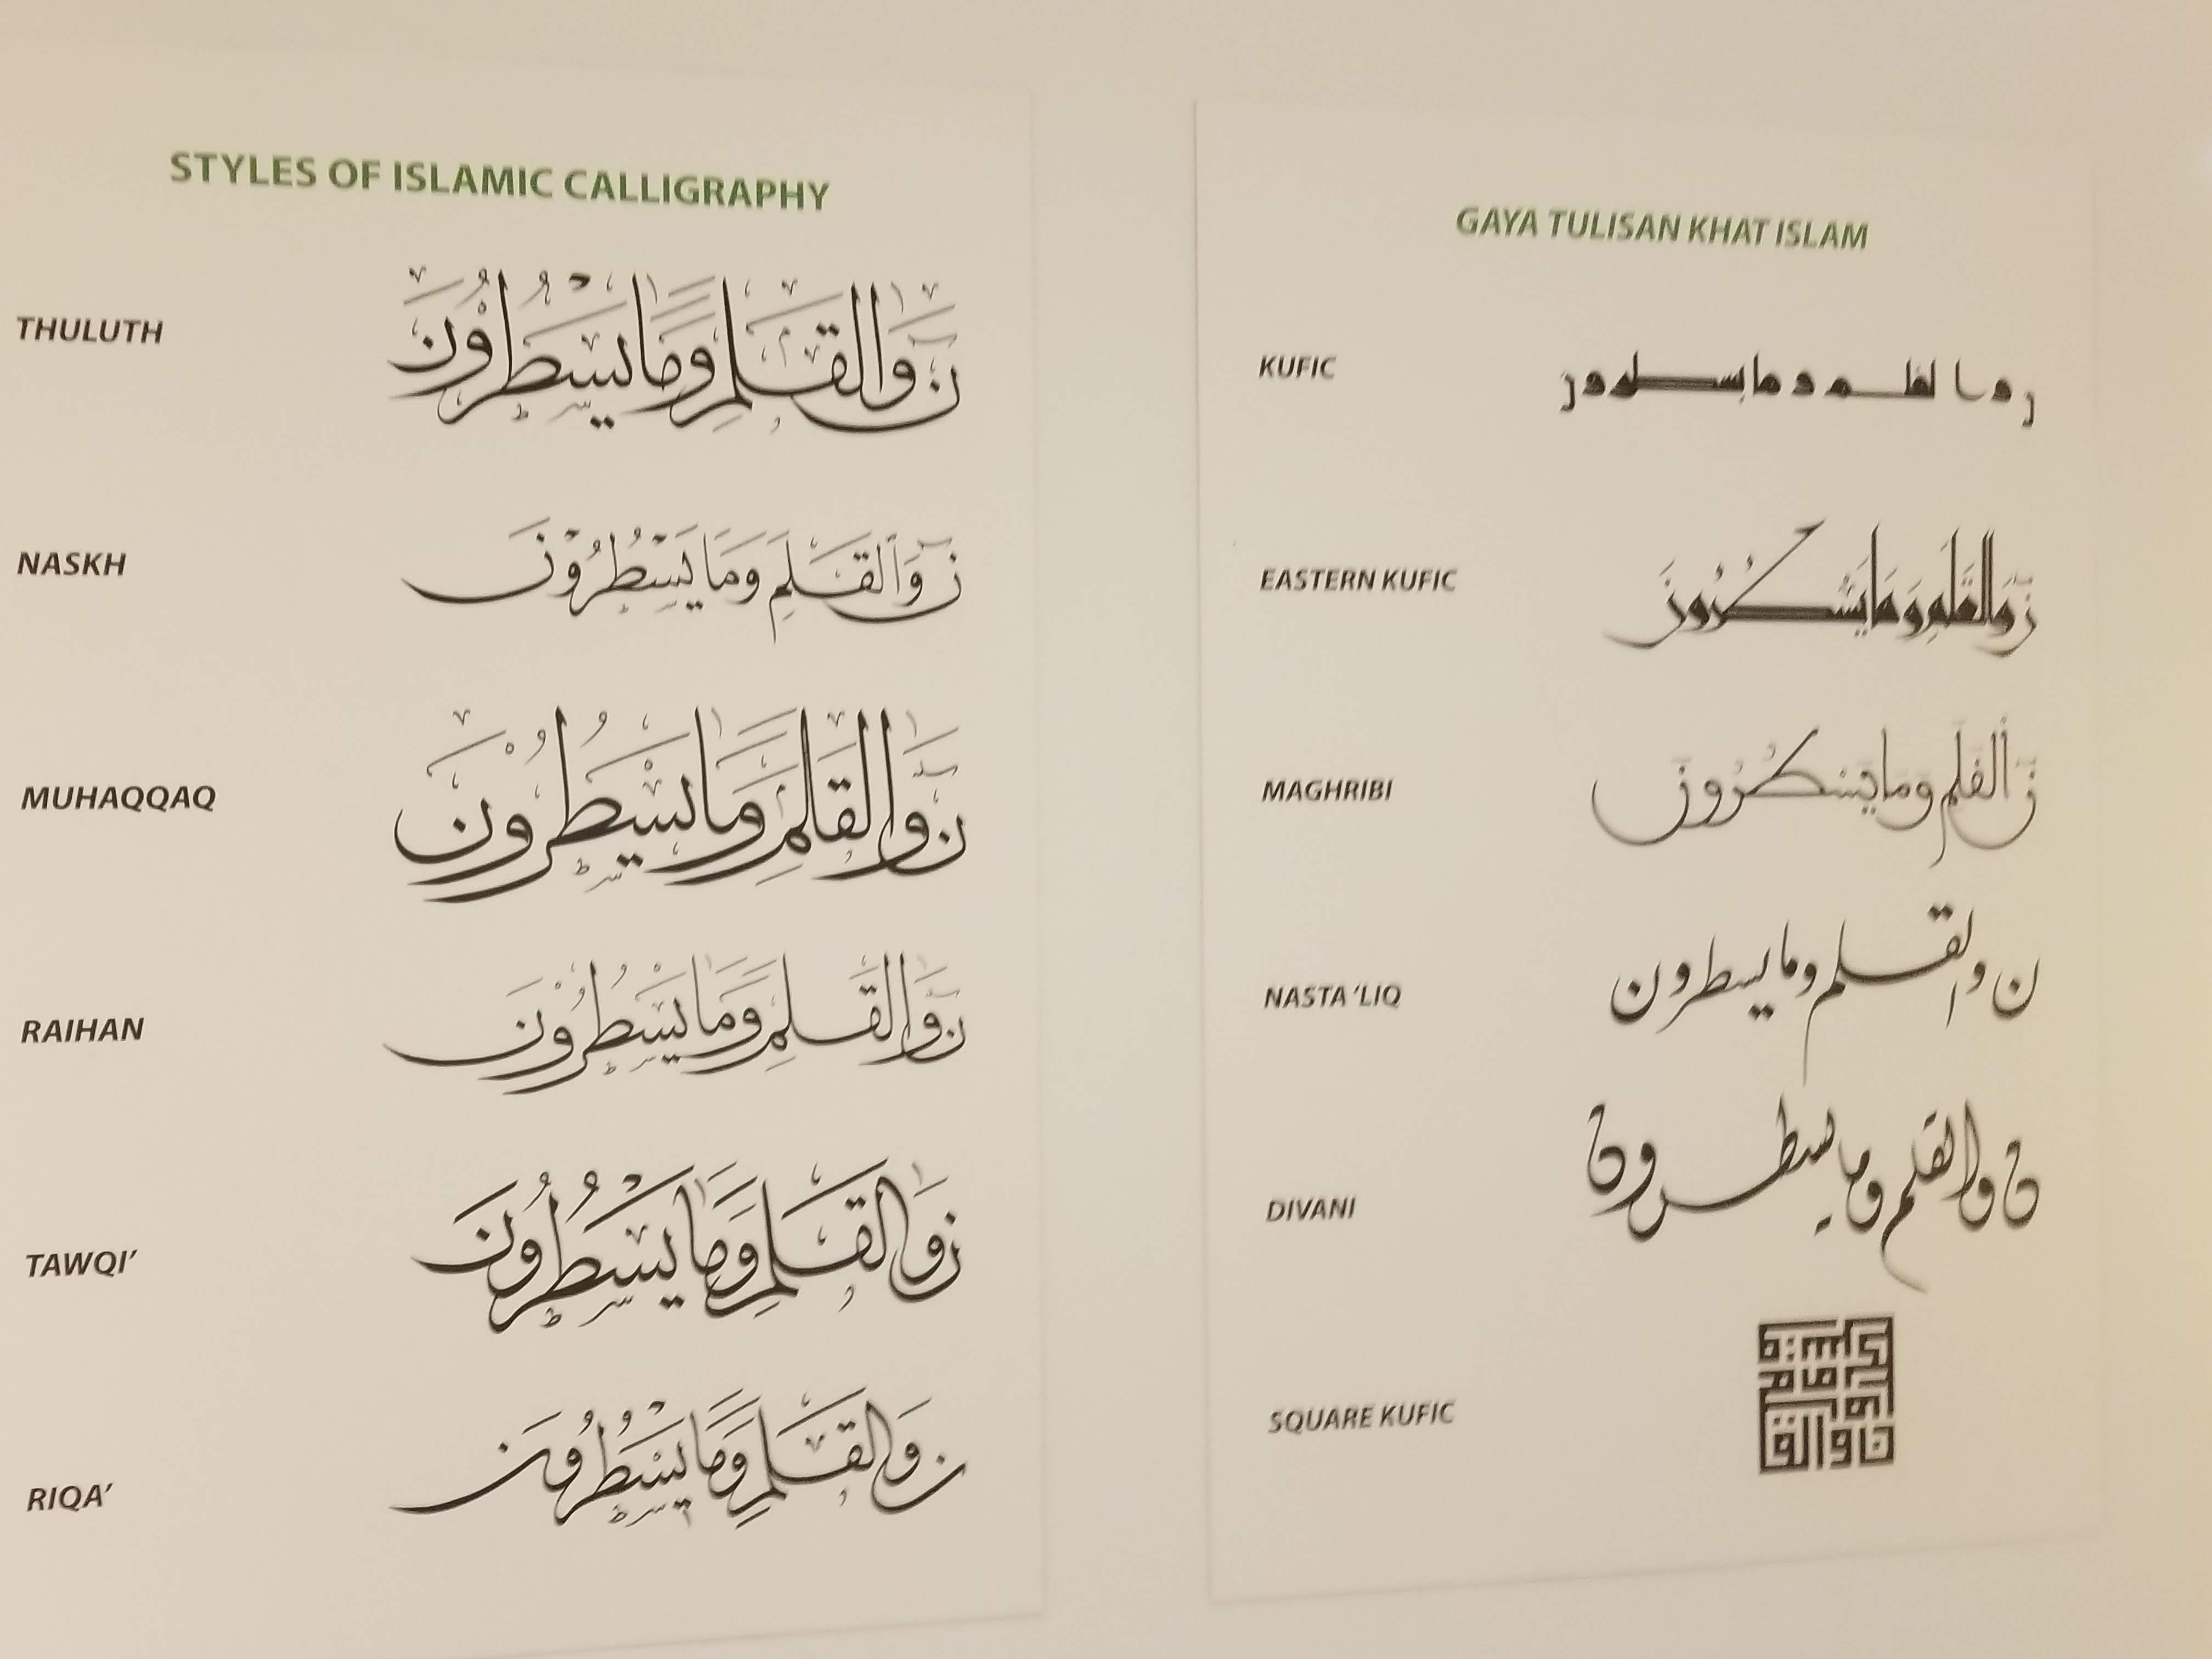 STYLES OF ISLAMIC CALLIGRAPHY
THULUTH
نَ وَالْقَلَمِ وَمَا يَسْطُرُوْنَ
NASKH
نَ وَالْقَلَمِ وَمَا يَسْطُرُوْنَ
MUHAQQAQ
نَ وَالْقَلَمِ وَمَا يَسْطُرُوْنَ
RAIHAN
نَ وَالْقَلَمِ وَمَا يَسْطُرُوْنَ
TAWQI’
ن وَالْقَلَمِ وَمَا يَسْطُرُوْنَ
RIQA’
ن وَالْقَلَمِ وَمَا يَسْطُرُوْنَ
GAYA TULISAN KHAT ISLAM
KUFIC
ن والقلم وما يسطرون
EASTERN KUFIC
نَ وَالْقَلَمِ وَمَا يَسْطُرُونَ
MAGHRIBI
ن والقلم وما يسطرون
NASTA‘LIQ
ن والقلم وما يسطرون
DIVANI
ن والقلم وما يسطرون
SQUARE KUFIC
ن والقلم وما يسطرون